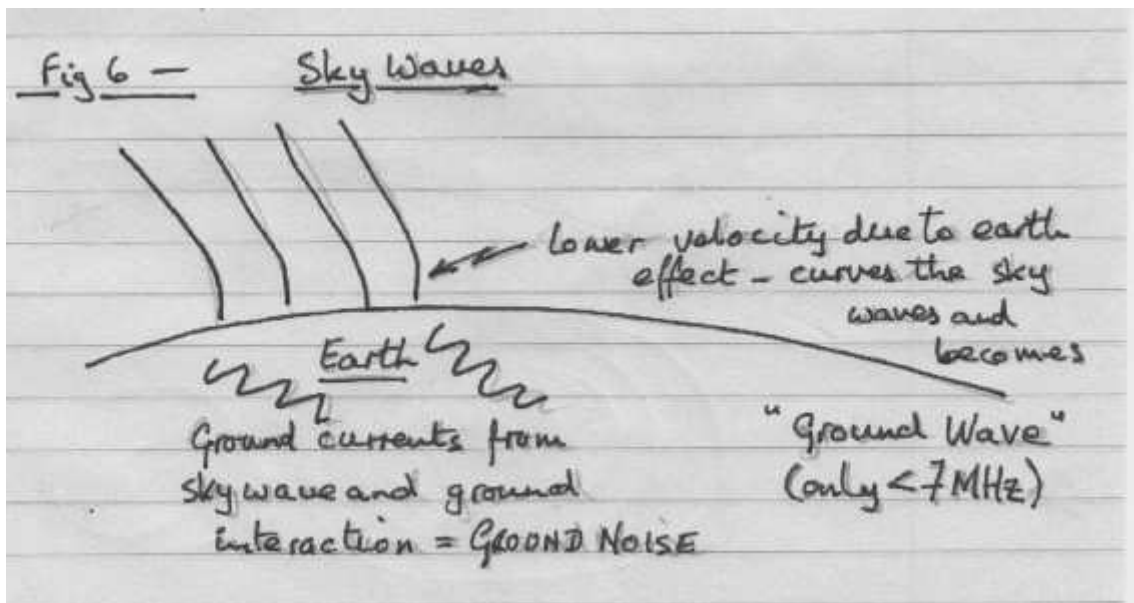 Fig 6 — Sky Waves
Lower velocity due to earth
effect - curves the sky
waves and
becomes
Earth
Ground currents from
sky wave and ground
interaction = GROUND NOISE
"Ground Wave"
(only < 7 MHz)